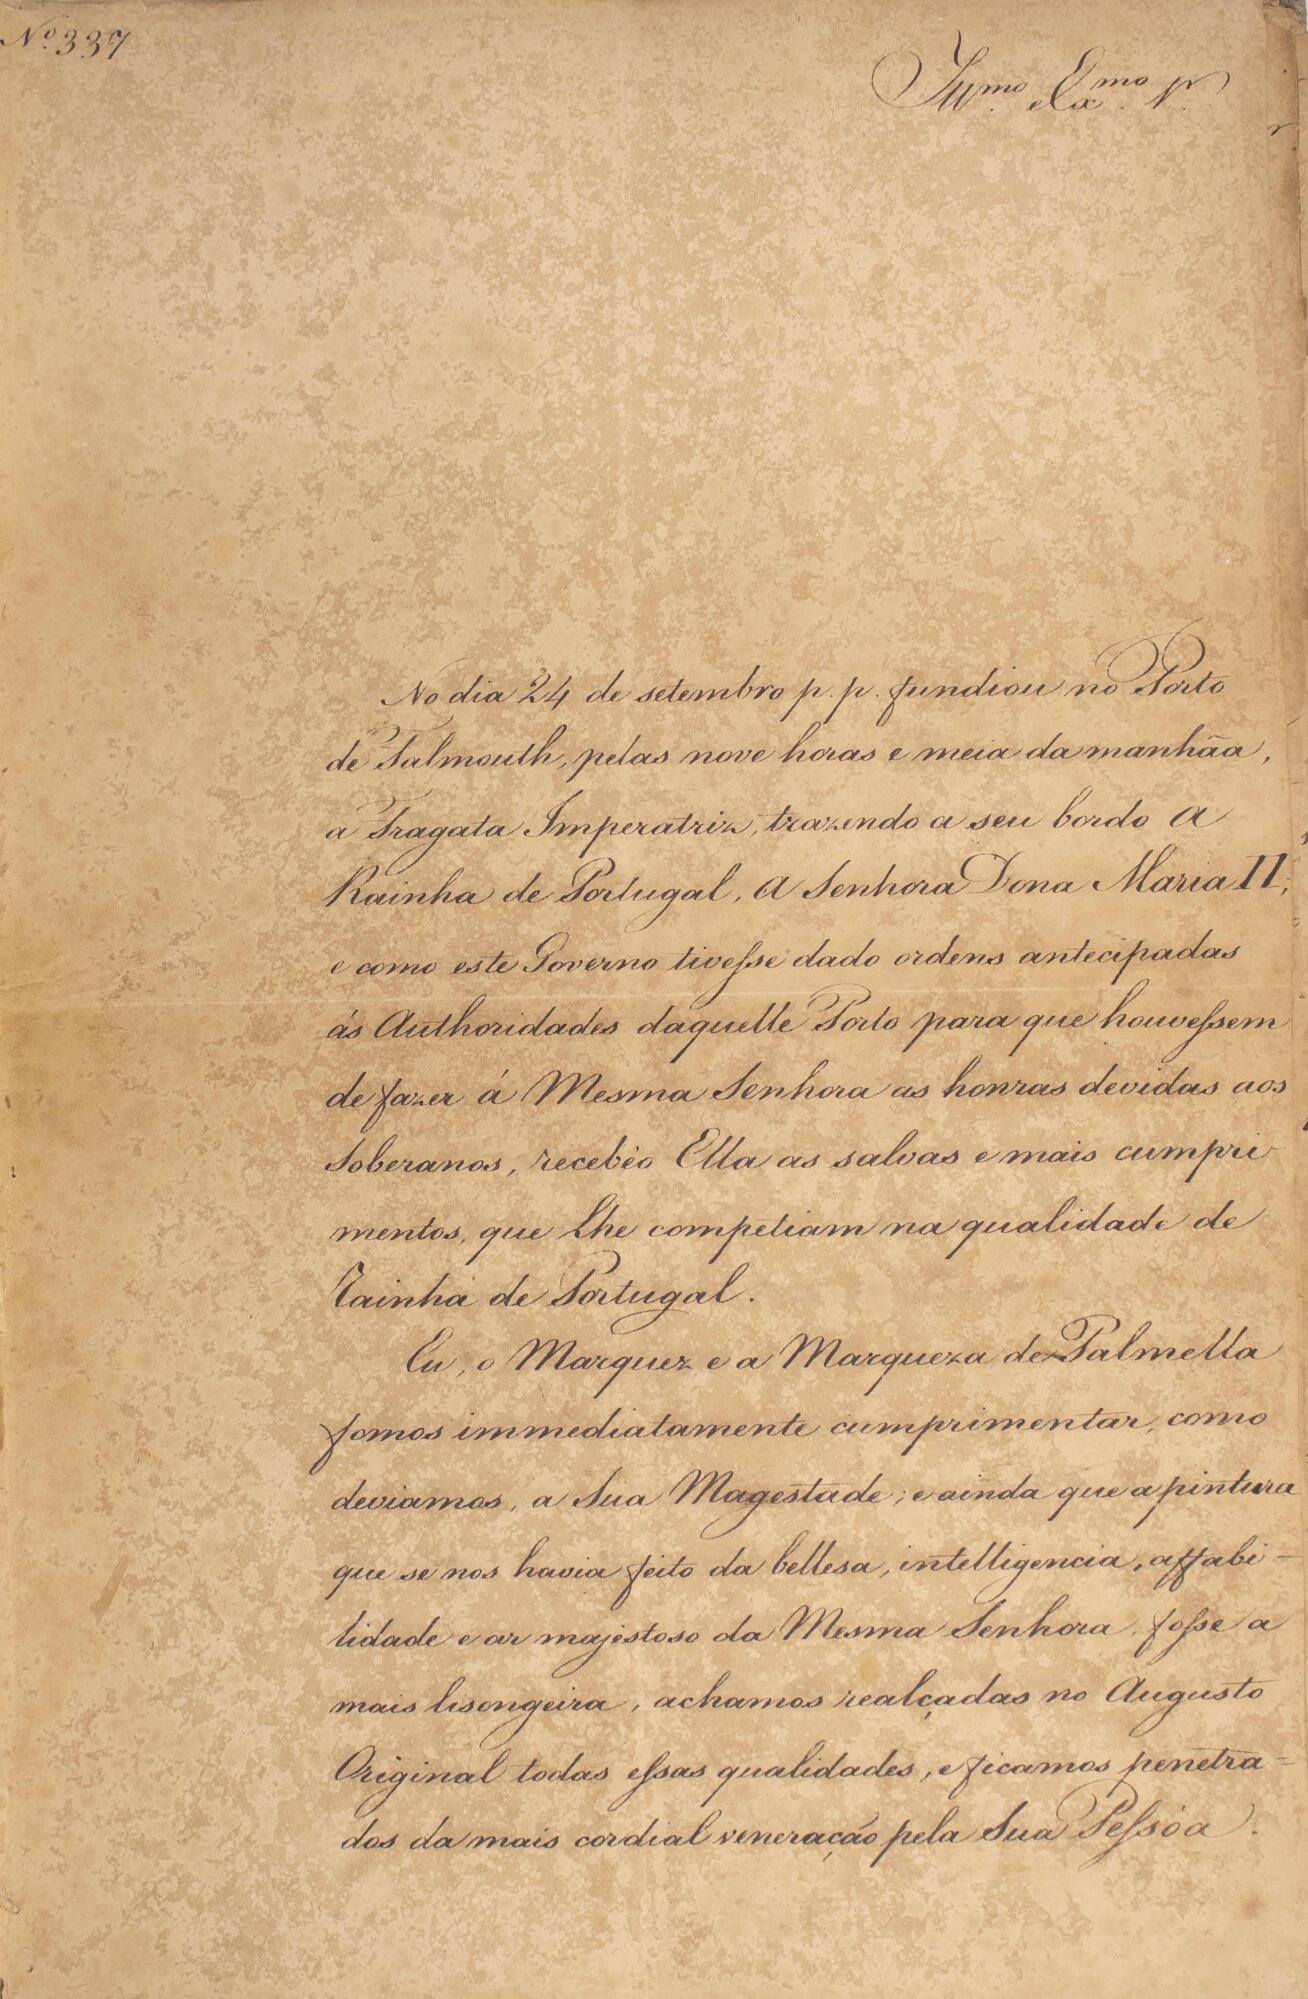 Nº 337
Illmo e Exmo Sr.
No dia 24 de setembro p. p. fundiou no Porto
de Falmouth, pelas nove horas e meia da manhãa,
a Fragata Imperatriz, trazendo a seu bordo A
Rainha de Portugal, A Senhora Dona Maria II,
e como este Governo tivesse dado ordens antecipadas
ás Authoridades daquelle Porto para que houvessem
de fazer á Mesma Senhora as honras devidas aos
Soberanos, recebêo Ella as salvas e mais cumpri-
mentos, que Lhe competiam na qualidade de
Rainha de Portugal.
Eu, o Marquez e a Marqueza de Palmella
fomos immediatamente cumprimentar, como
deviamos, a Sua Magestade; e ainda que a pintura
que se nos havia feito da bellesa, intelligencia, affabi-
lidade e ar majestoso da Mesma Senhora, fosse a
mais lisongeira, achamos realçadas no Augusto
Original todas essas qualidades, e ficamos penetra-
dos da mais cordial veneração pela Sua Pessôa.